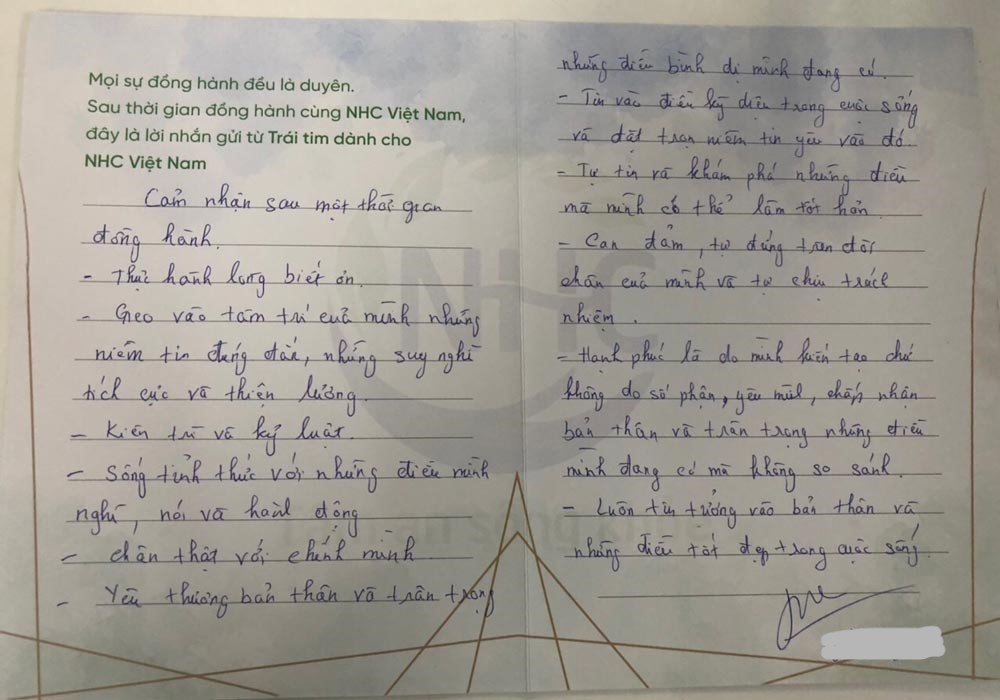 Mọi sự đồng hành đều là duyên.
Sau thời gian đồng hành cùng NHC Việt Nam,
đây là lời nhắn gửi từ Trái tim dành cho
NHC Việt Nam
Cảm nhận sau một thời gian
đồng hành.
- Thực hành lòng biết ơn.
- Gieo vào tâm trí của mình những
niềm tin đúng đắn, những suy nghĩ
tích cực và thiện lương.
- Kiên trì và kỷ luật.
- Sống tỉnh thức với những điều mình
nghĩ, nói và hành động
- chân thật với chính mình
- Yêu thương bản thân và trân trọng
những điều bình dị mình đang có.
- Tin vào điều kỳ diệu trong cuộc sống
và đặt trọn niềm tin yêu vào đó.
- Tự tin và khám phá những điều
mà mình có thể làm tốt hơn.
- Can đảm, tự đứng trên đôi
chân của mình và tự chịu trách
nhiệm.
- Hạnh phúc là do mình kiến tạo chứ
không do số phận, yêu mình, chấp nhận
bản thân và trân trọng những điều
mình đang có mà không so sánh.
- Luôn tin tưởng vào bản thân và
những điều tốt đẹp trong cuộc sống.
NHC